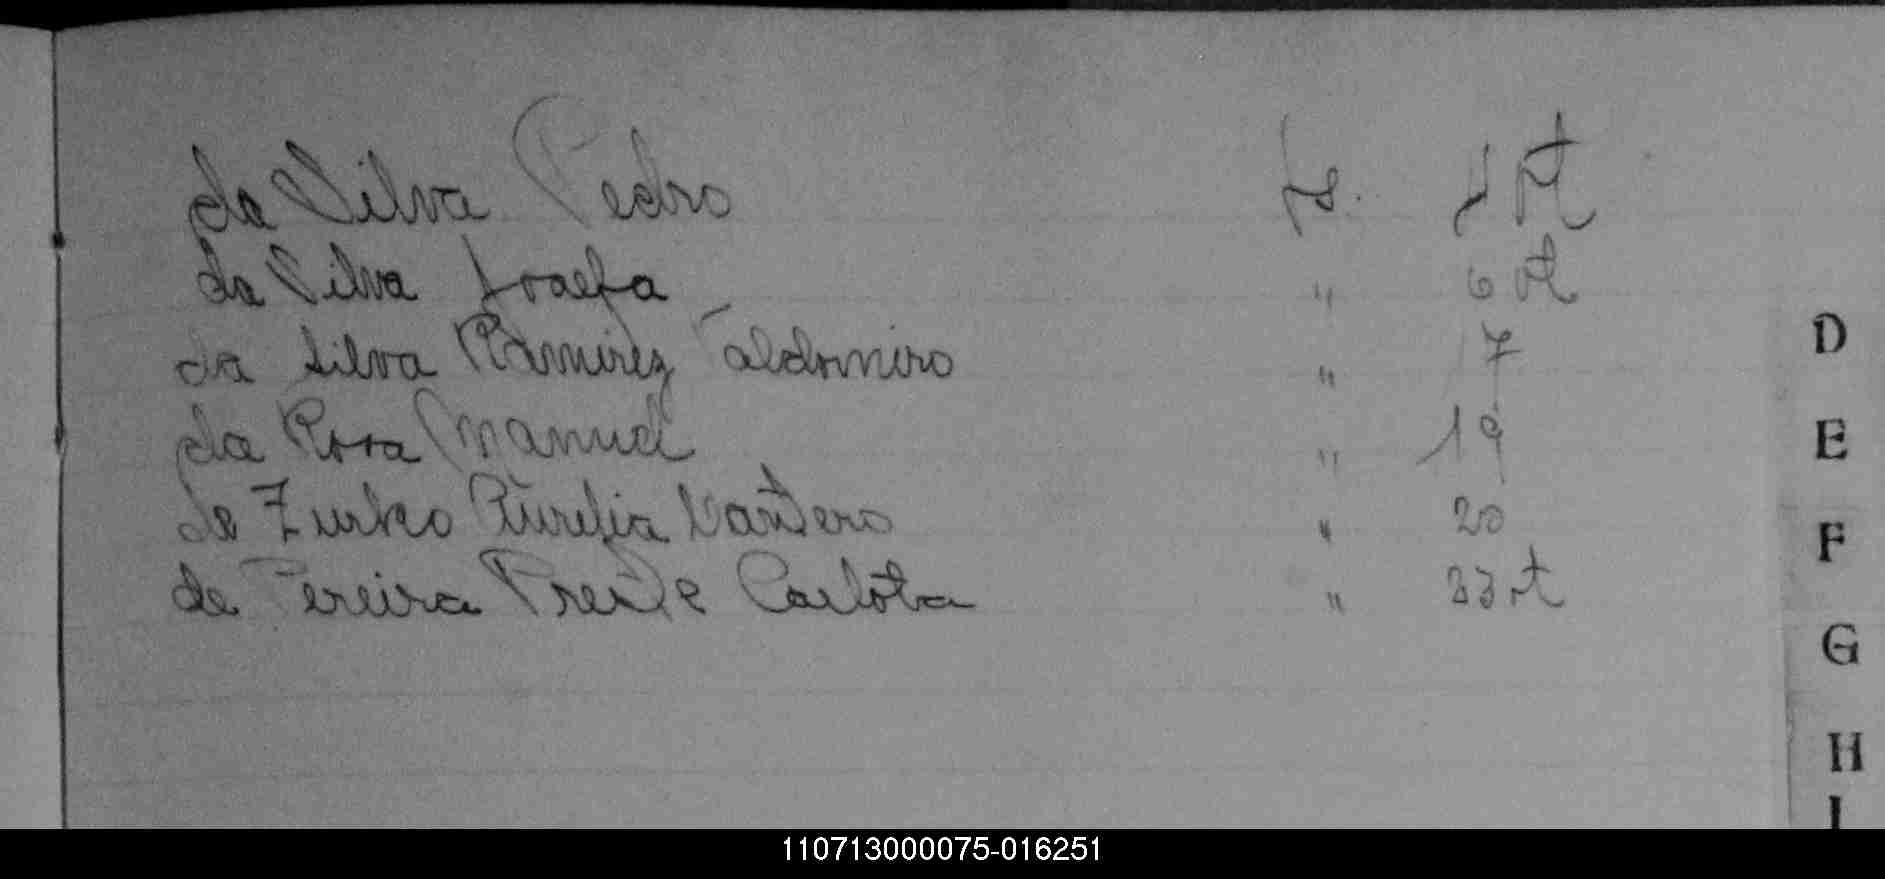 da Silva Pedro fs. 1 vt
da Silva Josefa " 6 vt
da Silva Ramirez Valdomiro " 7
da Rosa Manuel " 19
de Zurko Aurelia Cantero " 20
de Pereira Freile Carlota " 33 vt
D
E
F
G
H
I
110713000075-016251